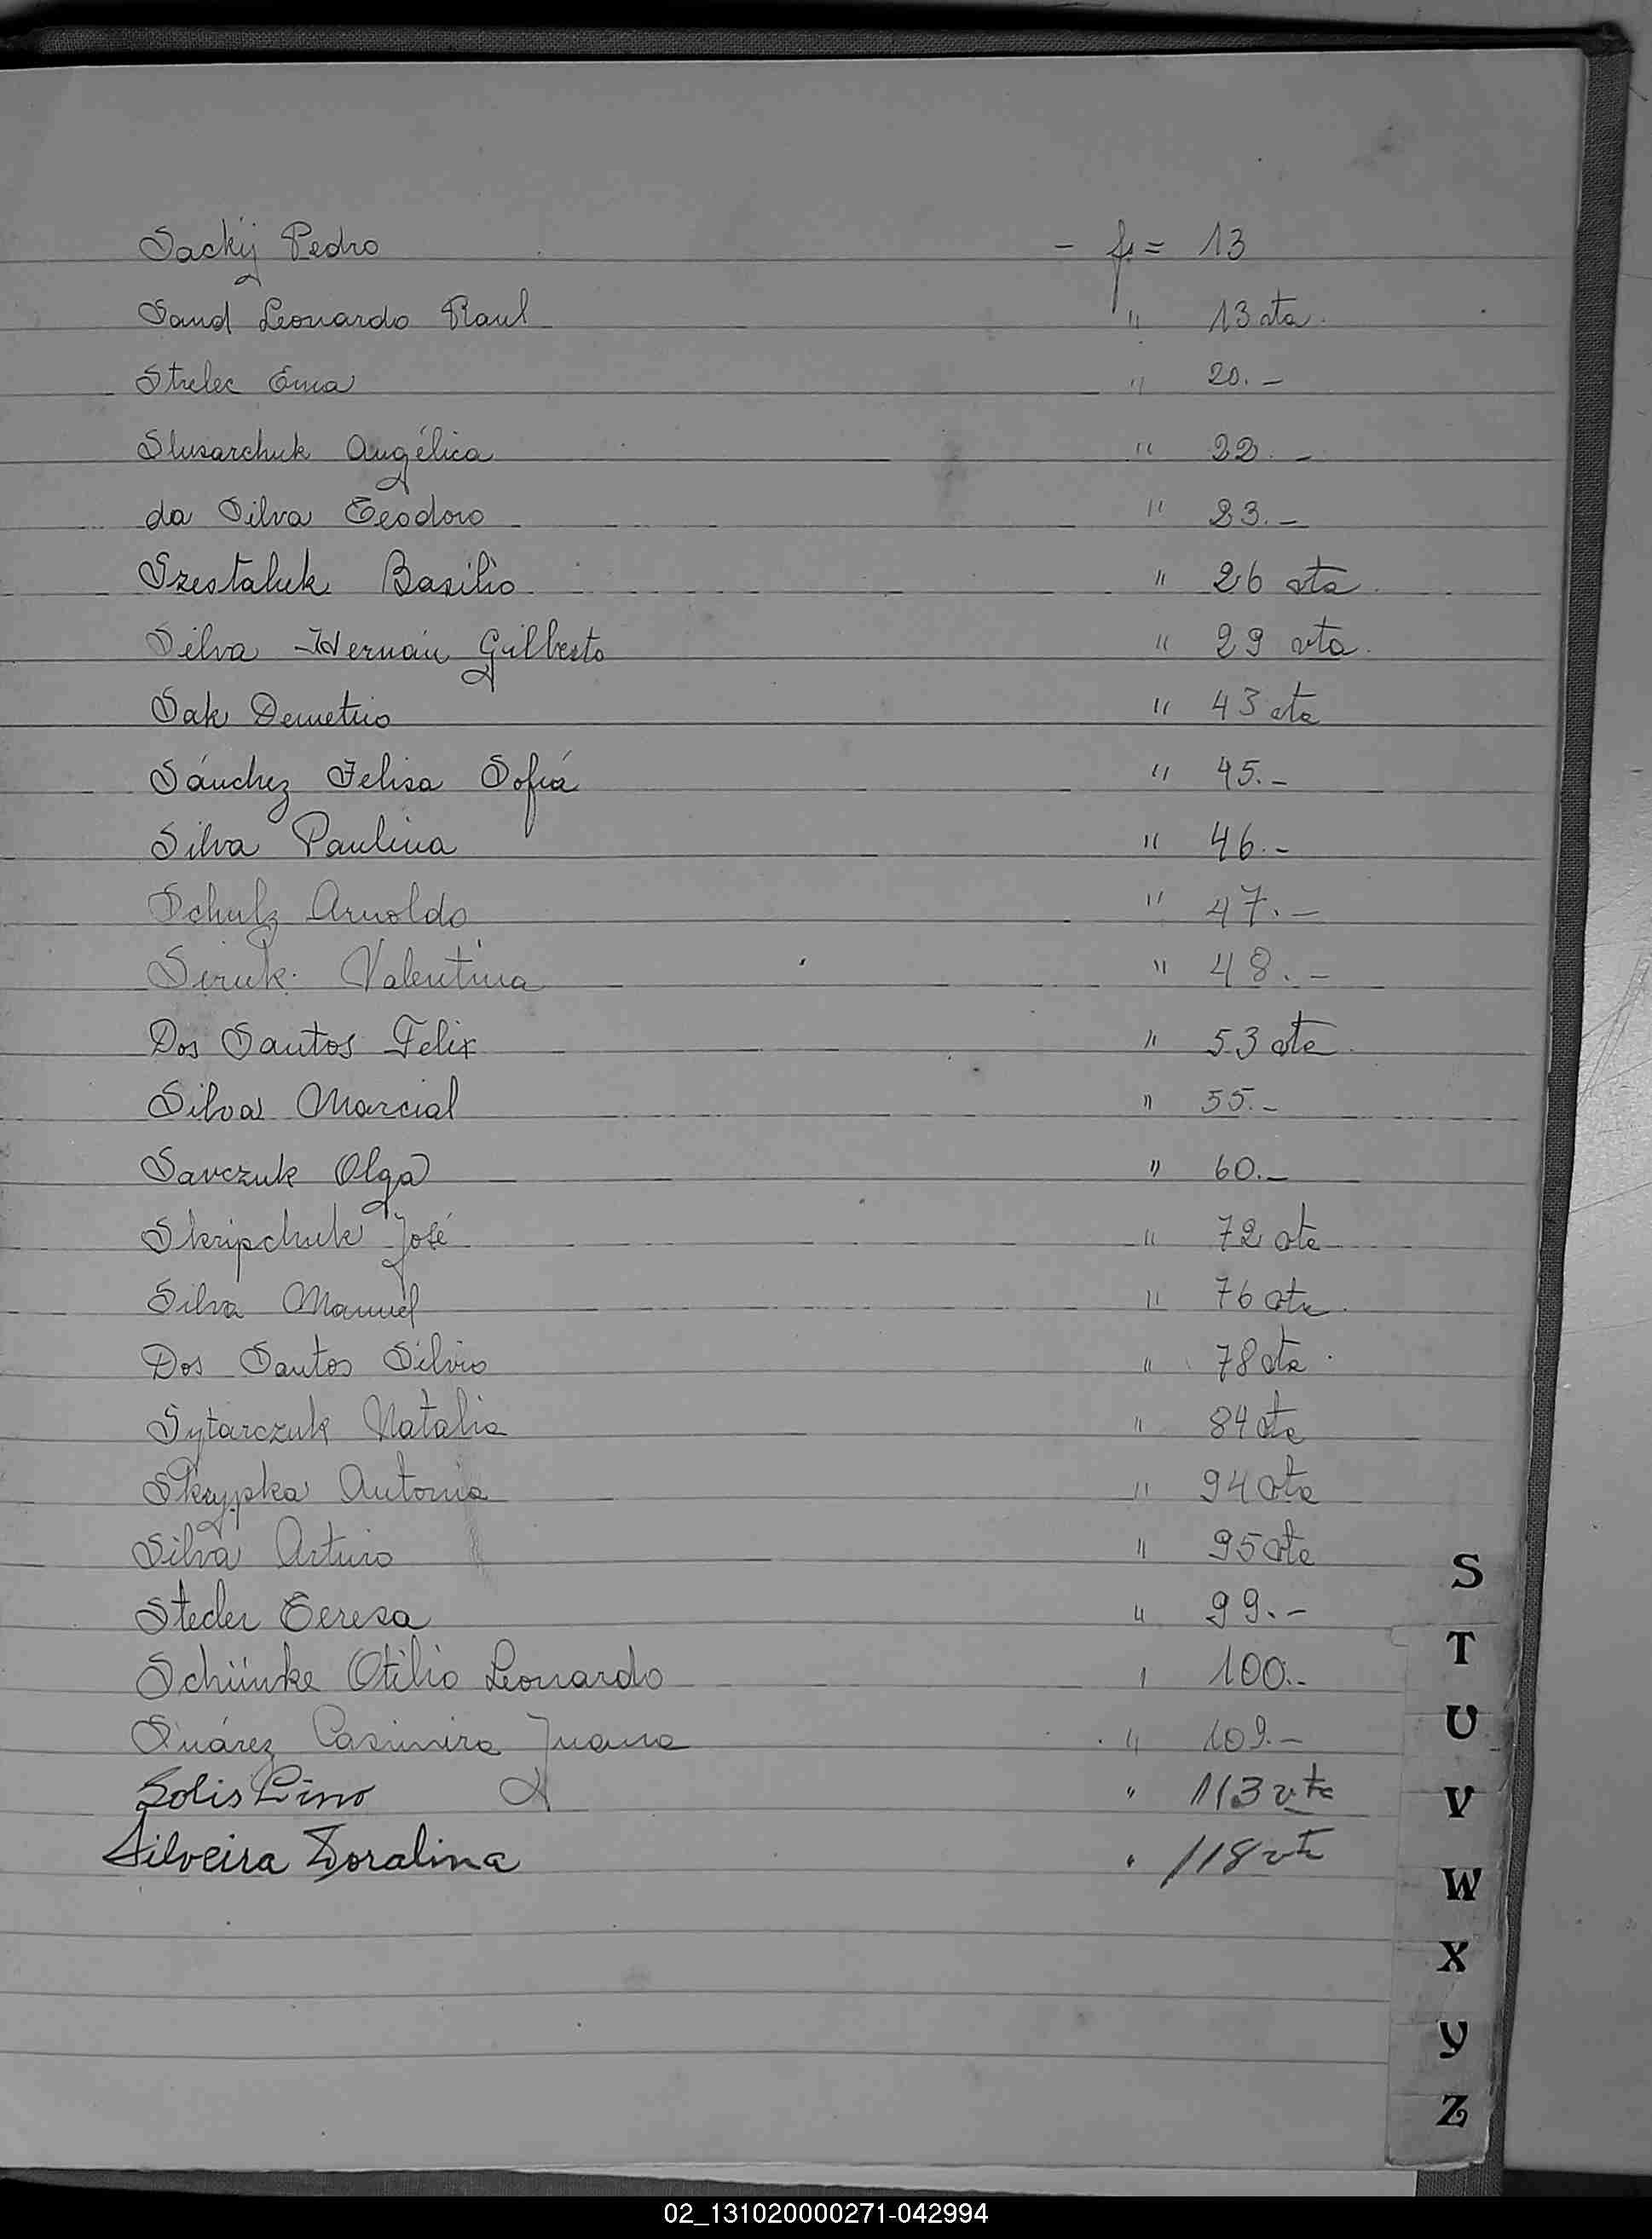 Sackij Pedro - f. = 13
Sand Leonardo Raul " 13 vta.
Strelec Ema " 20.-
Slusarchuk Angélica " 22.-
da Silva Teodoro " 23.-
Szestaluk Basilio " 26 vta.
Silva Hernán Gilberto " 29 vta.
Sak Demetrio " 43 vta
Sánchez Felisa Sofía " 45.-
Silva Paulina " 46.-
Schulz Arnoldo " 47.-
Siruk Valentina " 48.-
Dos Santos Felix " 53 vta.
Silva Marcial " 55.-
Savczuk Olga " 60.-
Skripchuk José " 72 vta
Silva Manuel " 76 vta.
Dos Santos Silvio " 78 vta.
Sytarczuk Natalia " 84 vta
Skrypka Antonia " 94 vta
Silva Arturo " 95 vta
Steder Teresa " 99.-
Schünke Otilio Leonardo " 100.-
Suárez Casimira Juana " 109.-
Solis Lino " 113 vta
Silveira Doralina " 118 vta
S
T
U
V
W
X
Y
Z
02_131020000271-042994